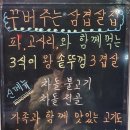 꾸버주는 삼겹살집
파, 고사리, 와 함께 먹는
3색이 왕솥뚜껑 3겹살
신메뉴
차돌 불고기
차돌 전골
가족과 함께 맛있는 고기도